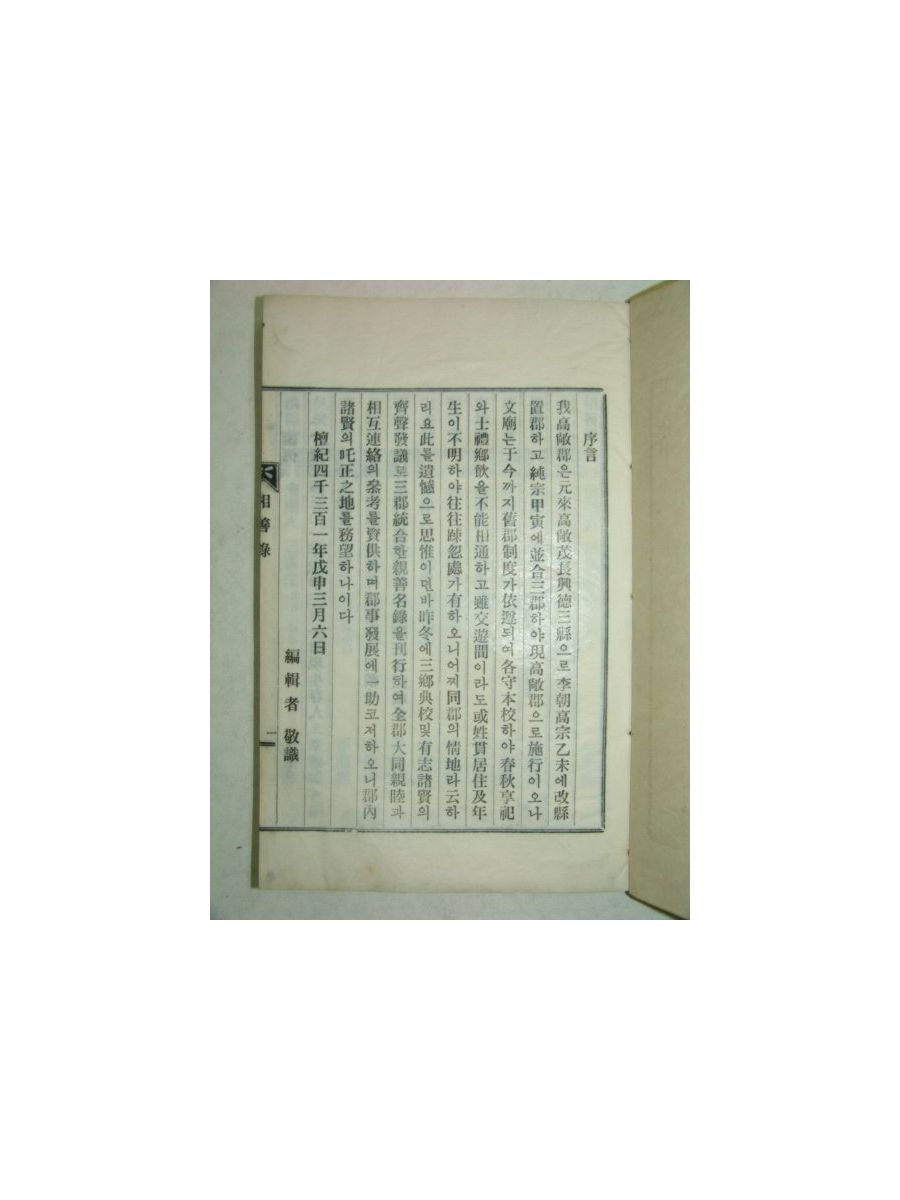 序言
我高敞郡은元來高敞茂長興德三縣으로李朝高宗乙未에改縣
置郡하고純宗甲寅에並合三郡하야現高敞郡으로施行이오나
文廟는于今까지舊郡制度가依邇되여各守本校하야春秋享祀
와士禮鄕飮을不能相通하고雖交遊間이라도或姓貫居住及年
生이不明하야往往踈忽處가有하오니어찌同郡의情地라云하
리요此를遺憾으로思惟이던바昨冬에三鄕典校및有志諸賢의
齊聲發議로三郡統合한親善名錄을刊行하여全郡大同親睦과
相互連絡의叅考를資供하며郡事發展에一助코저하오니郡內
諸賢의叱正之地를務望하나이다
檀紀四千三百一年戊申三月六日
編輯者 敬識
相善錄
一